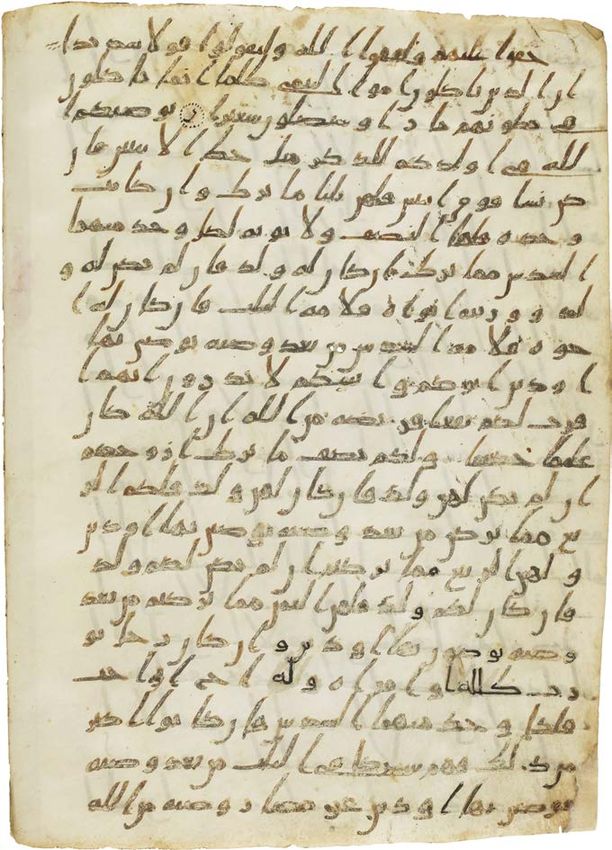 خفوا عليهم فليتقوا الله وليقولوا قولا سديدا
ان الذين ياكلون امول اليتمى ظلما انما ياكلون
في بطونهم نارا وسيصلون سعيرا يوصيكم ا
لله في اولدكم للذكر مثل حظ الانثيين فان
كن نسا فوق اثنتين فلهن ثلثا ما ترك وان كانت
وحدة فلها النصف ولابويه لكل وحد منهما
السدس مما ترك ان كان له ولد فان لم يكن له و
لد وورثه ابوه فلامه الثلث فان كان له ا
خوة فلامه السدس من بعد وصية يوصى بها
او دين اباوكم وابناوكم لا تدرون ايهم ا
قرب لكم نفعا فريضة من الله ان الله كان
عليما حكيما ولكم نصف ما ترك ازوجكم
ان لم يكن لهن ولد فان كان لهن ولد فلكم الر
بع مما تركن من بعد وصية يوصين بها او دين
ولهن الربع مما تركتم ان لم يكن لكم ولد
فان كان لكم ولد فلهن الثمن مما تركتم من بعد
وصية توصون بها او دين وان كان رجل يو
رث كللة او امراة وله اخ او اخت
فلكل وحد منهما السدس فان كانوا اكثر
من ذلك فهم شركا في الثلث من بعد وصية
يوصى بها او دين غير مضار وصية من الله